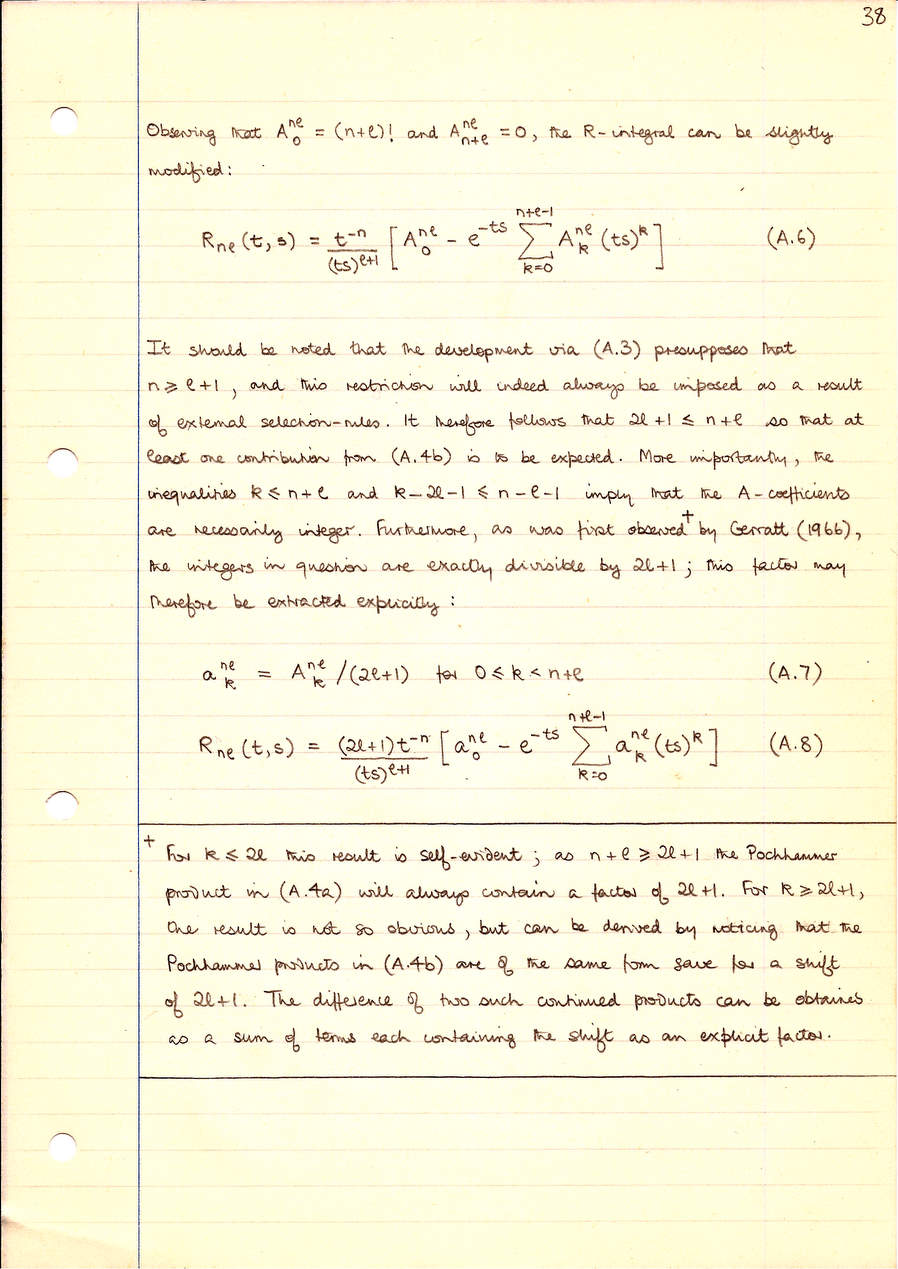 38
Observing that A₀ⁿˡ = (n+l)! and Aₙ₊ₗⁿˡ = 0, the R-integral can be slightly
modified:
Rₙₗ(t,s) = t⁻ⁿ/(ts)ˡ⁺¹ [A₀ⁿˡ - e⁻ᵗˢ ∑ₖ₌₀ⁿ⁺ˡ⁻¹ Aₖⁿˡ (ts)ᵏ] (A.6)
It should be noted that the development via (A.3) presupposes that
n ⩾ l+1, and this restriction will indeed always be imposed as a result
of external selection-rules. It therefore follows that 2l+1 ≤ n+l so that at
least one contribution from (A.4b) is to be expected. More importantly, the
inequalities k ≤ n+l and k-2l-1 ≤ n-l-1 imply that the A-coefficients
are necessarily integer. Furthermore, as was first observed† by Gerratt (1966),
the integers in question are exactly divisible by 2l+1; this factor may
therefore be extracted explicitly:
aₖⁿˡ = Aₖⁿˡ/(2l+1) for 0 ≤ k < n+l (A.7)
Rₙₗ(t,s) = (2l+1)t⁻ⁿ/(ts)ˡ⁺¹ [a₀ⁿˡ - e⁻ᵗˢ ∑ₖ₌₀ⁿ⁺ˡ⁻¹ aₖⁿˡ(ts)ᵏ] (A.8)
† For k ≤ 2l this result is self-evident; as n+l ⩾ 2l+1 the Pochhammer
product in (A.4a) will always contain a factor of 2l+1. For k ⩾ 2l+1,
the result is not so obvious, but can be derived by noticing that the
Pochhammer products in (A.4b) are of the same form save for a shift
of 2l+1. The difference of two such continued products can be obtained
as a sum of terms each containing the shift as an explicit factor.